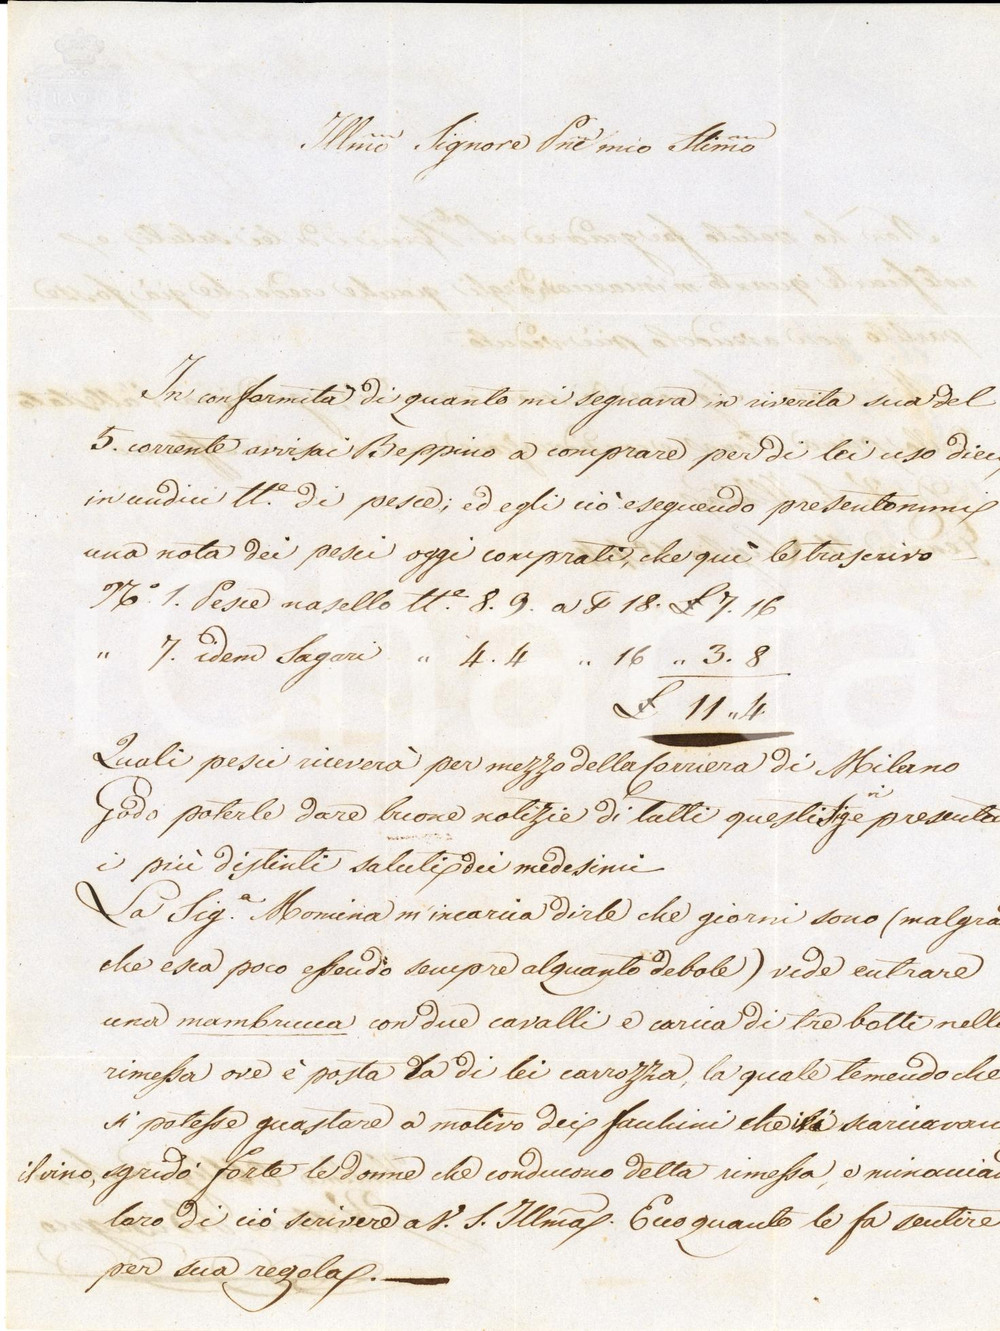 Illmo Signore Pne mio Stimo
In conformità di quanto mi segnava in riverita sua del
5. corrente avvisai Beppino a comprare per di lei uso dieci
in undici tt.e di pesce; ed egli ciò eseguendo presentommi
una nota dei pesci oggi comprati, che quì le trascrivo
N.o 1. Pesce nasello tt.e 8. 9. a 18. £ 7. 16
" 7. idem Sagari " 4. 4 " 16 " 3. 8
£ 11 " 4
Quali pesci riceverà per mezzo della Corriera di Milano
Godo poterle dare buone notizie di tutti questi Sigri presento
i più distinti saluti dei medesimi
La Sig.a Momina m'incarica dirle che giorni sono (malgra
che esca poco essendo sempre alquanto debole) vide entrare
una mambrucca con due cavalli e carica di tre botti nella
rimessa ove è posta la di lei carrozza, la quale temendo che
si potesse guastare a motivo dei fachini che ivi scaricavan
il vino, sgridò forte le donne che conducono detta rimessa, e minaccia
loro di ciò scrivere a V. S. Illma. Ecco quanto le fa sentire
per sua regola.